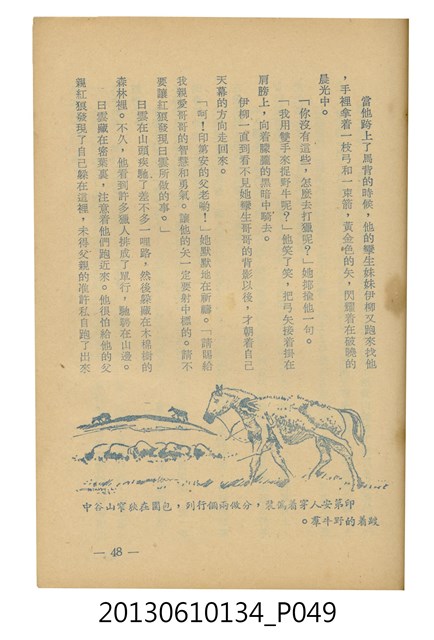 當他跨上了馬背的時候，他的孿生妹妹伊柳又跑來找他
，手裡拿着一枝弓和一束箭，黃金色的矢，閃耀着在破曉的
晨光中。
「你沒有這些，怎麽去打獵呢？」她揶揄他一句。
「我用雙手來捉野牛呢？」他笑了笑，把弓矢接着掛在
肩膀上，向着朦朧的黑暗中騎去。
伊柳一直到看不見她孿生哥哥的背影以後，才朝着自己
天幕的方向走回來。
「呵！印第安的父老喲！」她默默地在祈禱。「請賜給
我親愛哥哥的智慧和勇氣。讓他的矢一定要射中標的。請不
要讓紅狼發現日雲所做的事。」
日雲在山頭疾馳了差不多一哩路，然後躱藏在木棉樹的
森林裡。不久，他看到許多獵人排成了單行，馳騁在山邊。
日雲藏在密葉裏，注意着他們跑近來。他很怕給他的父
親紅狼發現了自己躱在這裡，未得父親的准許私自跑了出來
印第安人穿着僞裝，分做兩個行列，包圍在狹窄山谷中
跤着的野牛羣。
— 48 —
20130610134_P049